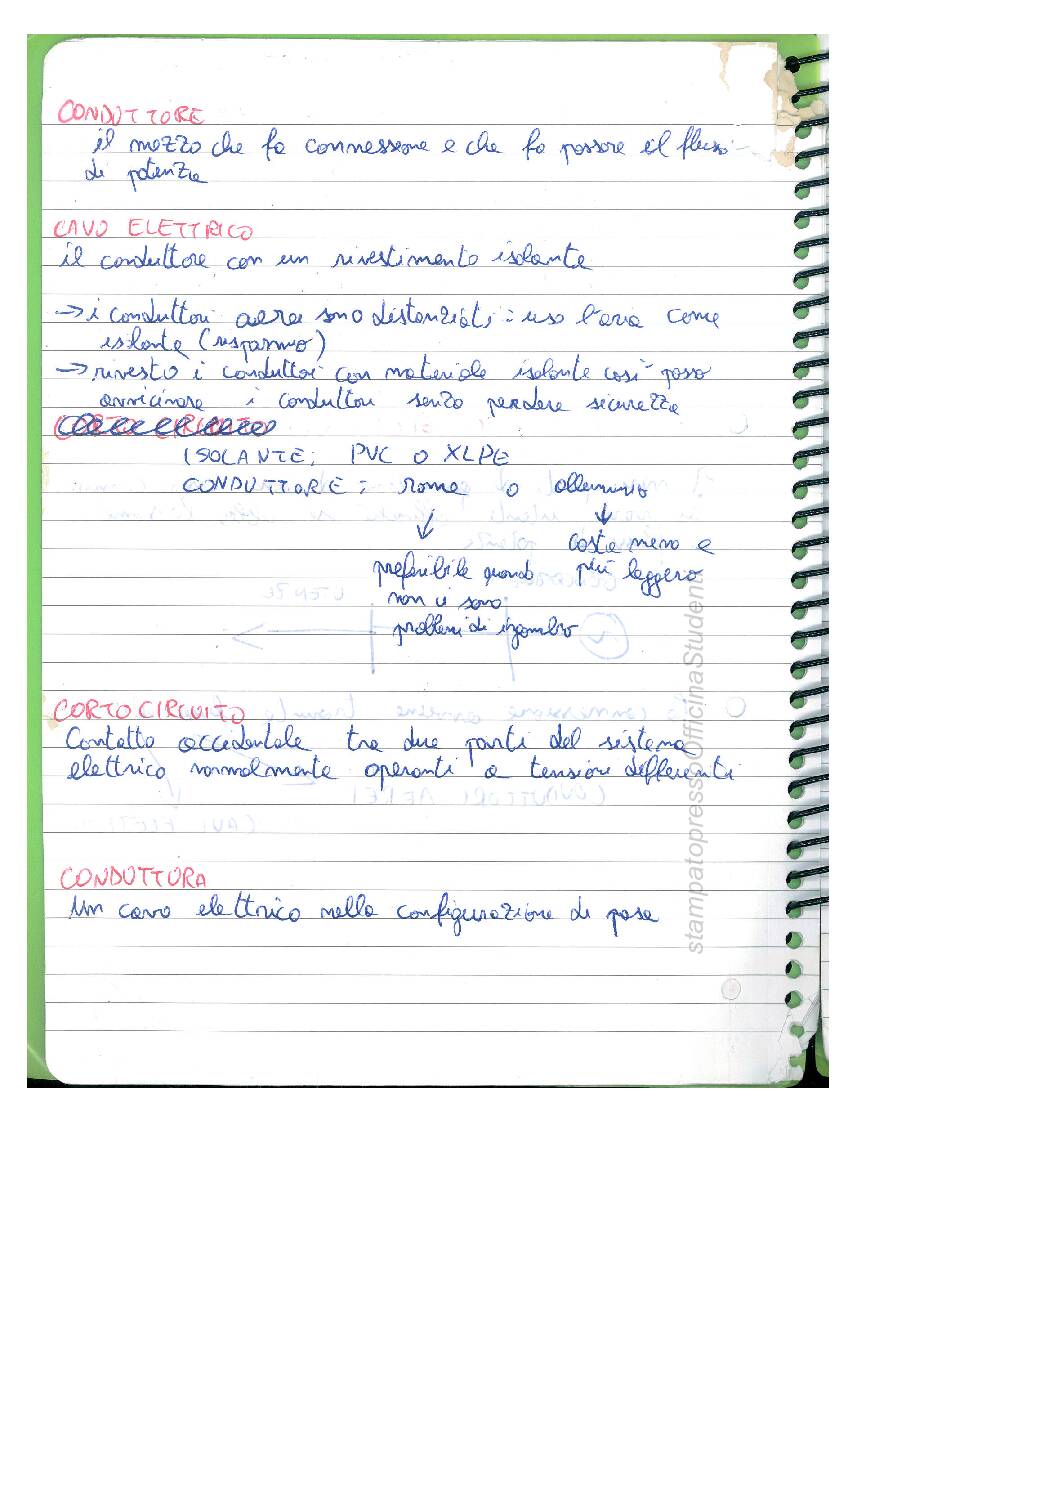 CONDUTTORE
il mezzo che fa connessione e che fa passare il flusso
di potenza
CAVO ELETTRICO
il conduttore con un rivestimento isolante
→ i conduttori aerei sono distanziati: uso l'aria come
isolante (risparmio)
→ rivesto i conduttori con materiale isolante così posso
avvicinare i conduttori senza perdere sicurezza
CORTO CIRCUITO
ISOLANTE: PVC O XLPE
CONDUTTORE: rame o alluminio
↓ ↓
costa meno e
preferibile quando più leggero
non ci sono
problemi di ingombro
CORTO CIRCUITO
Contatto accidentale tra due parti del sistema
elettrico normalmente operanti a tensione differenti
CONDUTTURA
Un cavo elettrico nella configurazione di posa
stampatopressoOfficinaStudenti